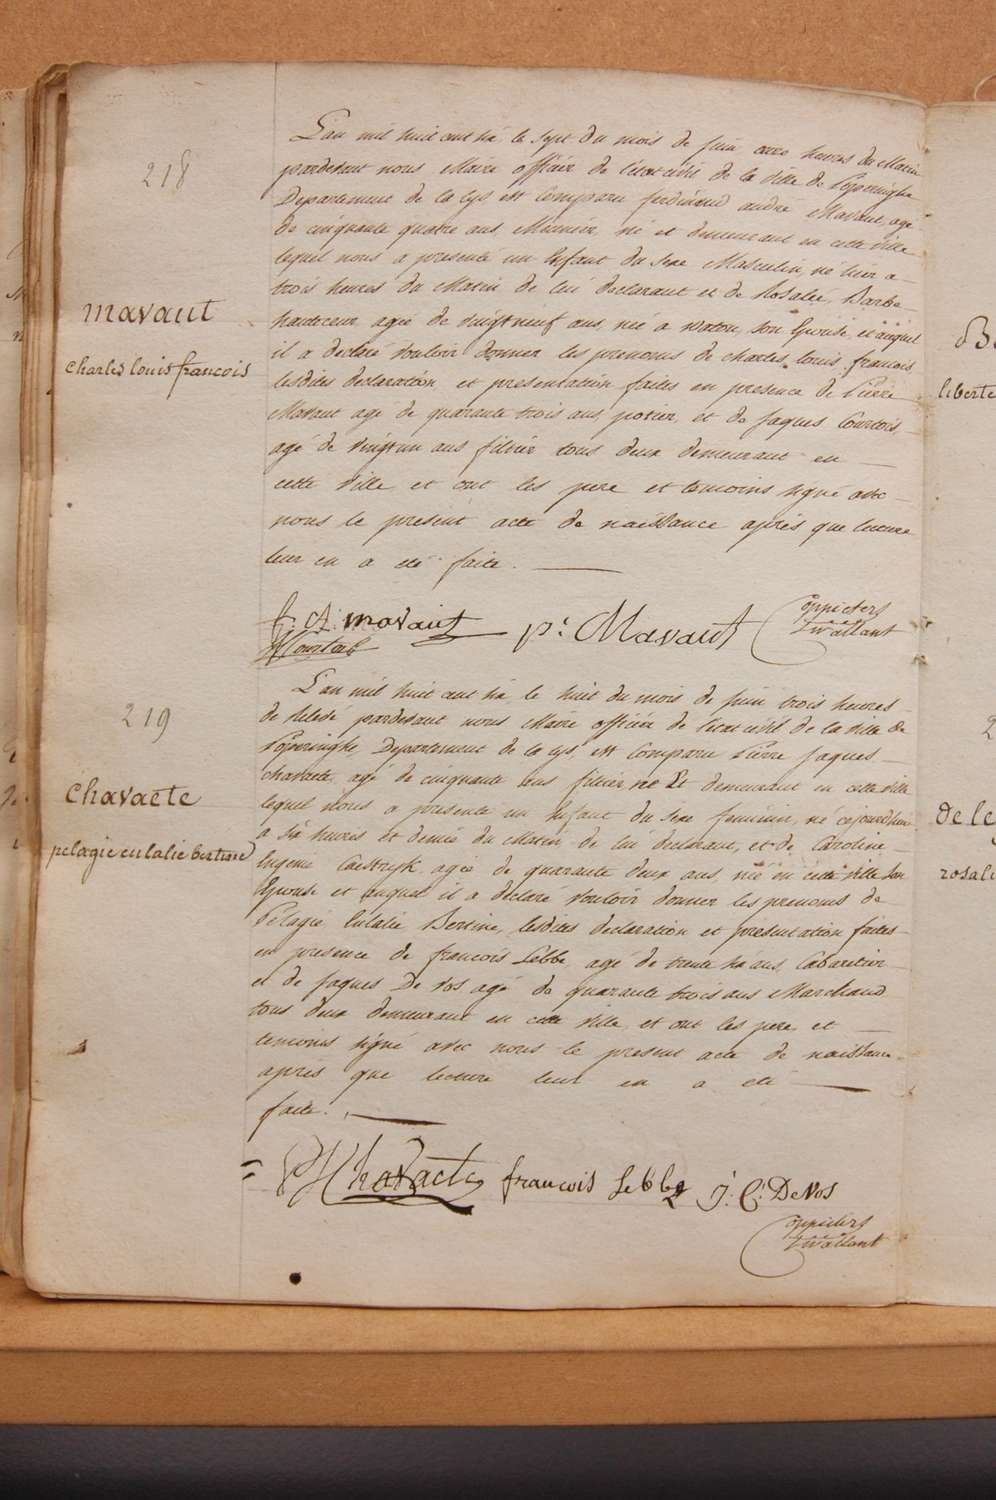 218
mavaut
charles louis francois
L'an mil huit cent six, le sept du mois de juin onze heures du Matin
pardevant nous Maire officier de l'état civil de la ville de Poperinghe
Departement de la Lys, est Comparu ferdinand andré Mavaut, agé
de cinquante quatre ans, Meunier, né et demeurant en cette ville
lequel nous a presenté un Enfant du sexe Masculin, né hier a
trois heures du Matin de lui declarant et de Rosalie, Barbe
hautecœur, agée de vingt neuf ans, née a Watou, son Epouse, et auquel
il a declaré vouloir donner les prenoms de charles, louis, francois
lesdites declaration et presentation faites en presence de Pierre
Mavaut agé de quarante trois ans, potier, et de Jaques Courtois,
agé de vingt un ans filtier tous deux demeurant en
cette ville et ont les pere et temoins signé avec
nous le present acte de naissance aprés que lecture
leur en a eté faite.
f: A: mavaut
p: Mavaut
oppieters
219
chavaete
pelagie eulalie bertine
L'an mil huit cent six, le huit du mois de juin trois heures
de relevé pardevant nous Maire officier de l'état civil de la ville de
Poperinghe, Departement de la Lys, est Comparu Pierre Jaques
chavaete, agé de cinquante ans filtier né Et demeurant en cette ville
lequel nous a presenté un Enfant du sexe feminin, né cejourd'hui
a six heures et demie du Matin de lui declarant, et de Caroline
Eugenie Caestryk, agée de quarante deux ans, née en cette ville son
Epouse et auquel il a declaré vouloir donner les prenoms de
Pelagie Eulalie Bertine, lesdites declaration et presentation faites
en presence de francois Lebbe, agé de trente six ans, Cabaretier
et de Jaques De Vos agé de quarante trois ans Marchand
tous deux demeurant en cette ville, et ont les pere et
temoins signé avec nous le present acte de naissance
apres que lecture leur en a eté
faite.
PJ Chavaete francois Lebbe J: C: De Vos
oppieters
liberte
rosali